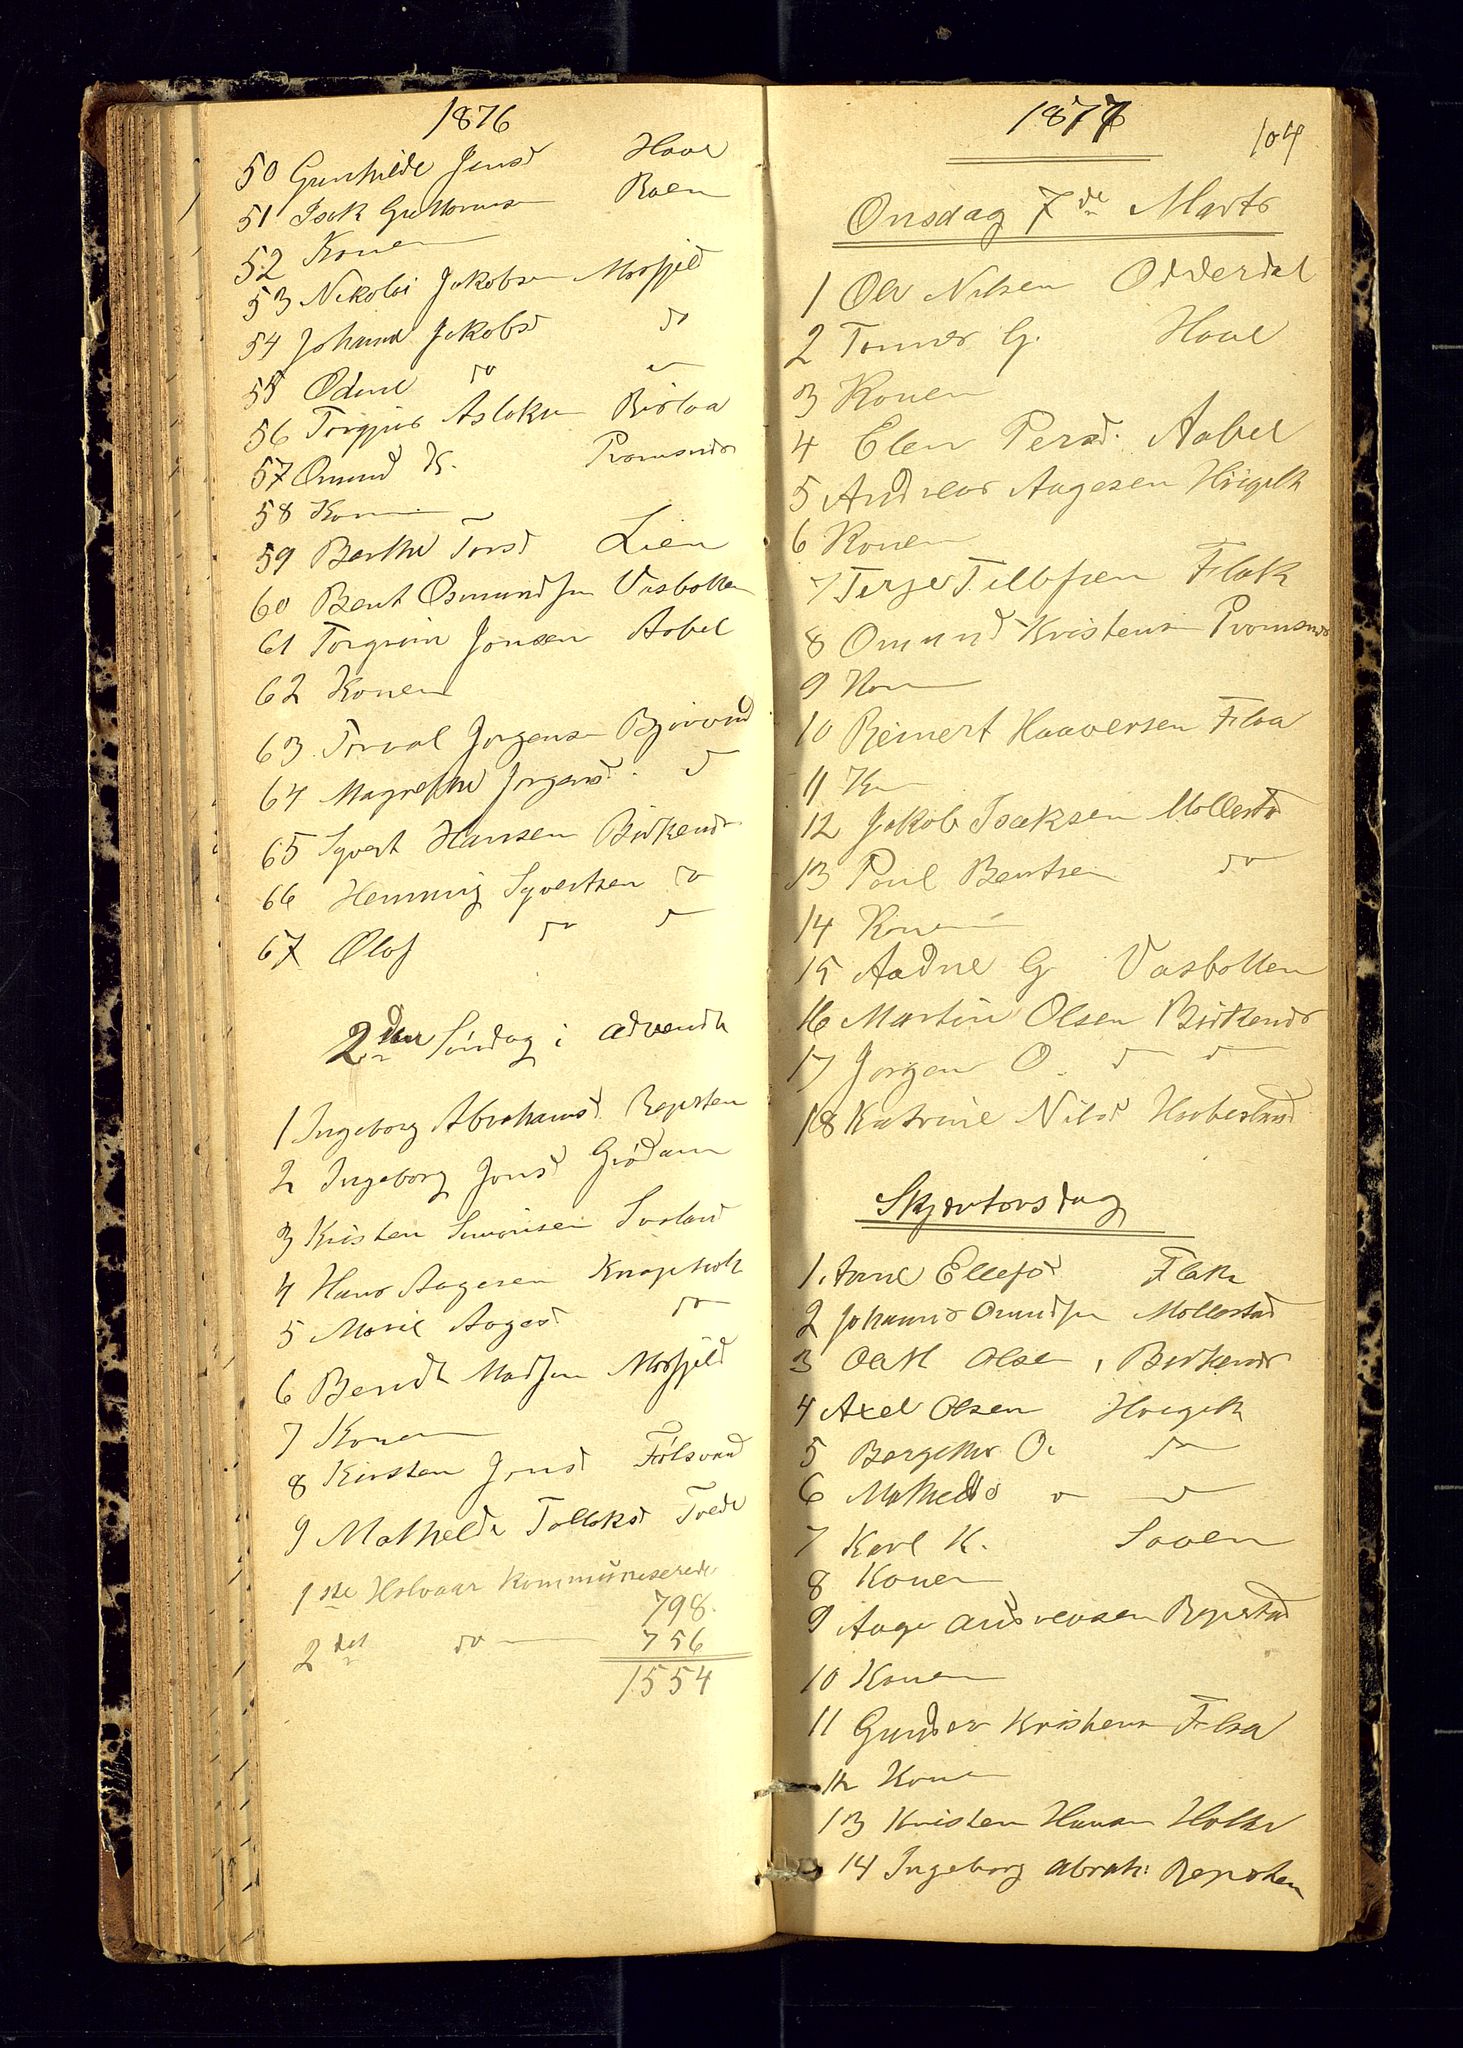 1876
50 Gunhilde Jensd Haae
51 Isak Guttormsen Roen
52 Konen
53 Nikolai Jakobsen Mosfjeld
54 Johanne Jakobsd do
55 Odine do do
56 Torgjus Aslaksen Birloa
57 Omund K.
58 Konen
59 Berthe Torsd Lien
60 Bent Osmundsen Vasbotten
61 Torgrim Jonsen Aabel
62 Konen
63 Torval Jorgensen Bjorvand
64 Magrethe Jorgensd. do
65 Syvert Hansen Birkenes
66 Hemmig Syvertsen do
67 Olaf do do
2den Søndag i advendt
1 Ingeborg Abrahamsd. Repsten
2 Ingeborg Jonsd Grødum
3 Kristen Simonsen
4 Hans Aagesen Knapholt
5 Marie Aagesd do
6 Bendt Madsen Mosfjeld
7 Konen
8 Kirsten Jonsd Følsvand
9 Mathelde Tollaksd Tvede
1ste Halvaar Kommuniserede
798.
2det do 756
1554
1877
104
Onsdag 7de Marts
1 Ole Nilsen Odderdal
2 Tomas G. Haae
3 Konen
4 Elen Persd. Aabel
5 Andreas Aagesen Høigilt
6 Konen
7 Terje Tellefsen Flak
8 Omund Kristensen
9 Kon
10 Reinert Haaversen Flaa
11 Kn
12 Jakob Isaksen Mollestad
13 Poul Bentsen do
14 Konen
15 Aadne G Vasbotten
16 Martin Olsen Birkenes
17 Jorgen O. do do
18 Katrine Nilsd Havbestad
Skjærtorsdag
1. Anne Ellefsd Flak
2 Johannes Omundsen Mollestad
3 Olsen, Birkenes
4 Axel Olsen Høigilt
5 Bergithe O. do
6 Mathelde O do
7 Karl K. Saaen
8 Konen
9 Aage Andreasen Repstad
10 Konen
11 Gunder Kristensen Flaa
12 Konen
13 Kristen Hansen Holte
14 Ingeborg Abrah: Repsten